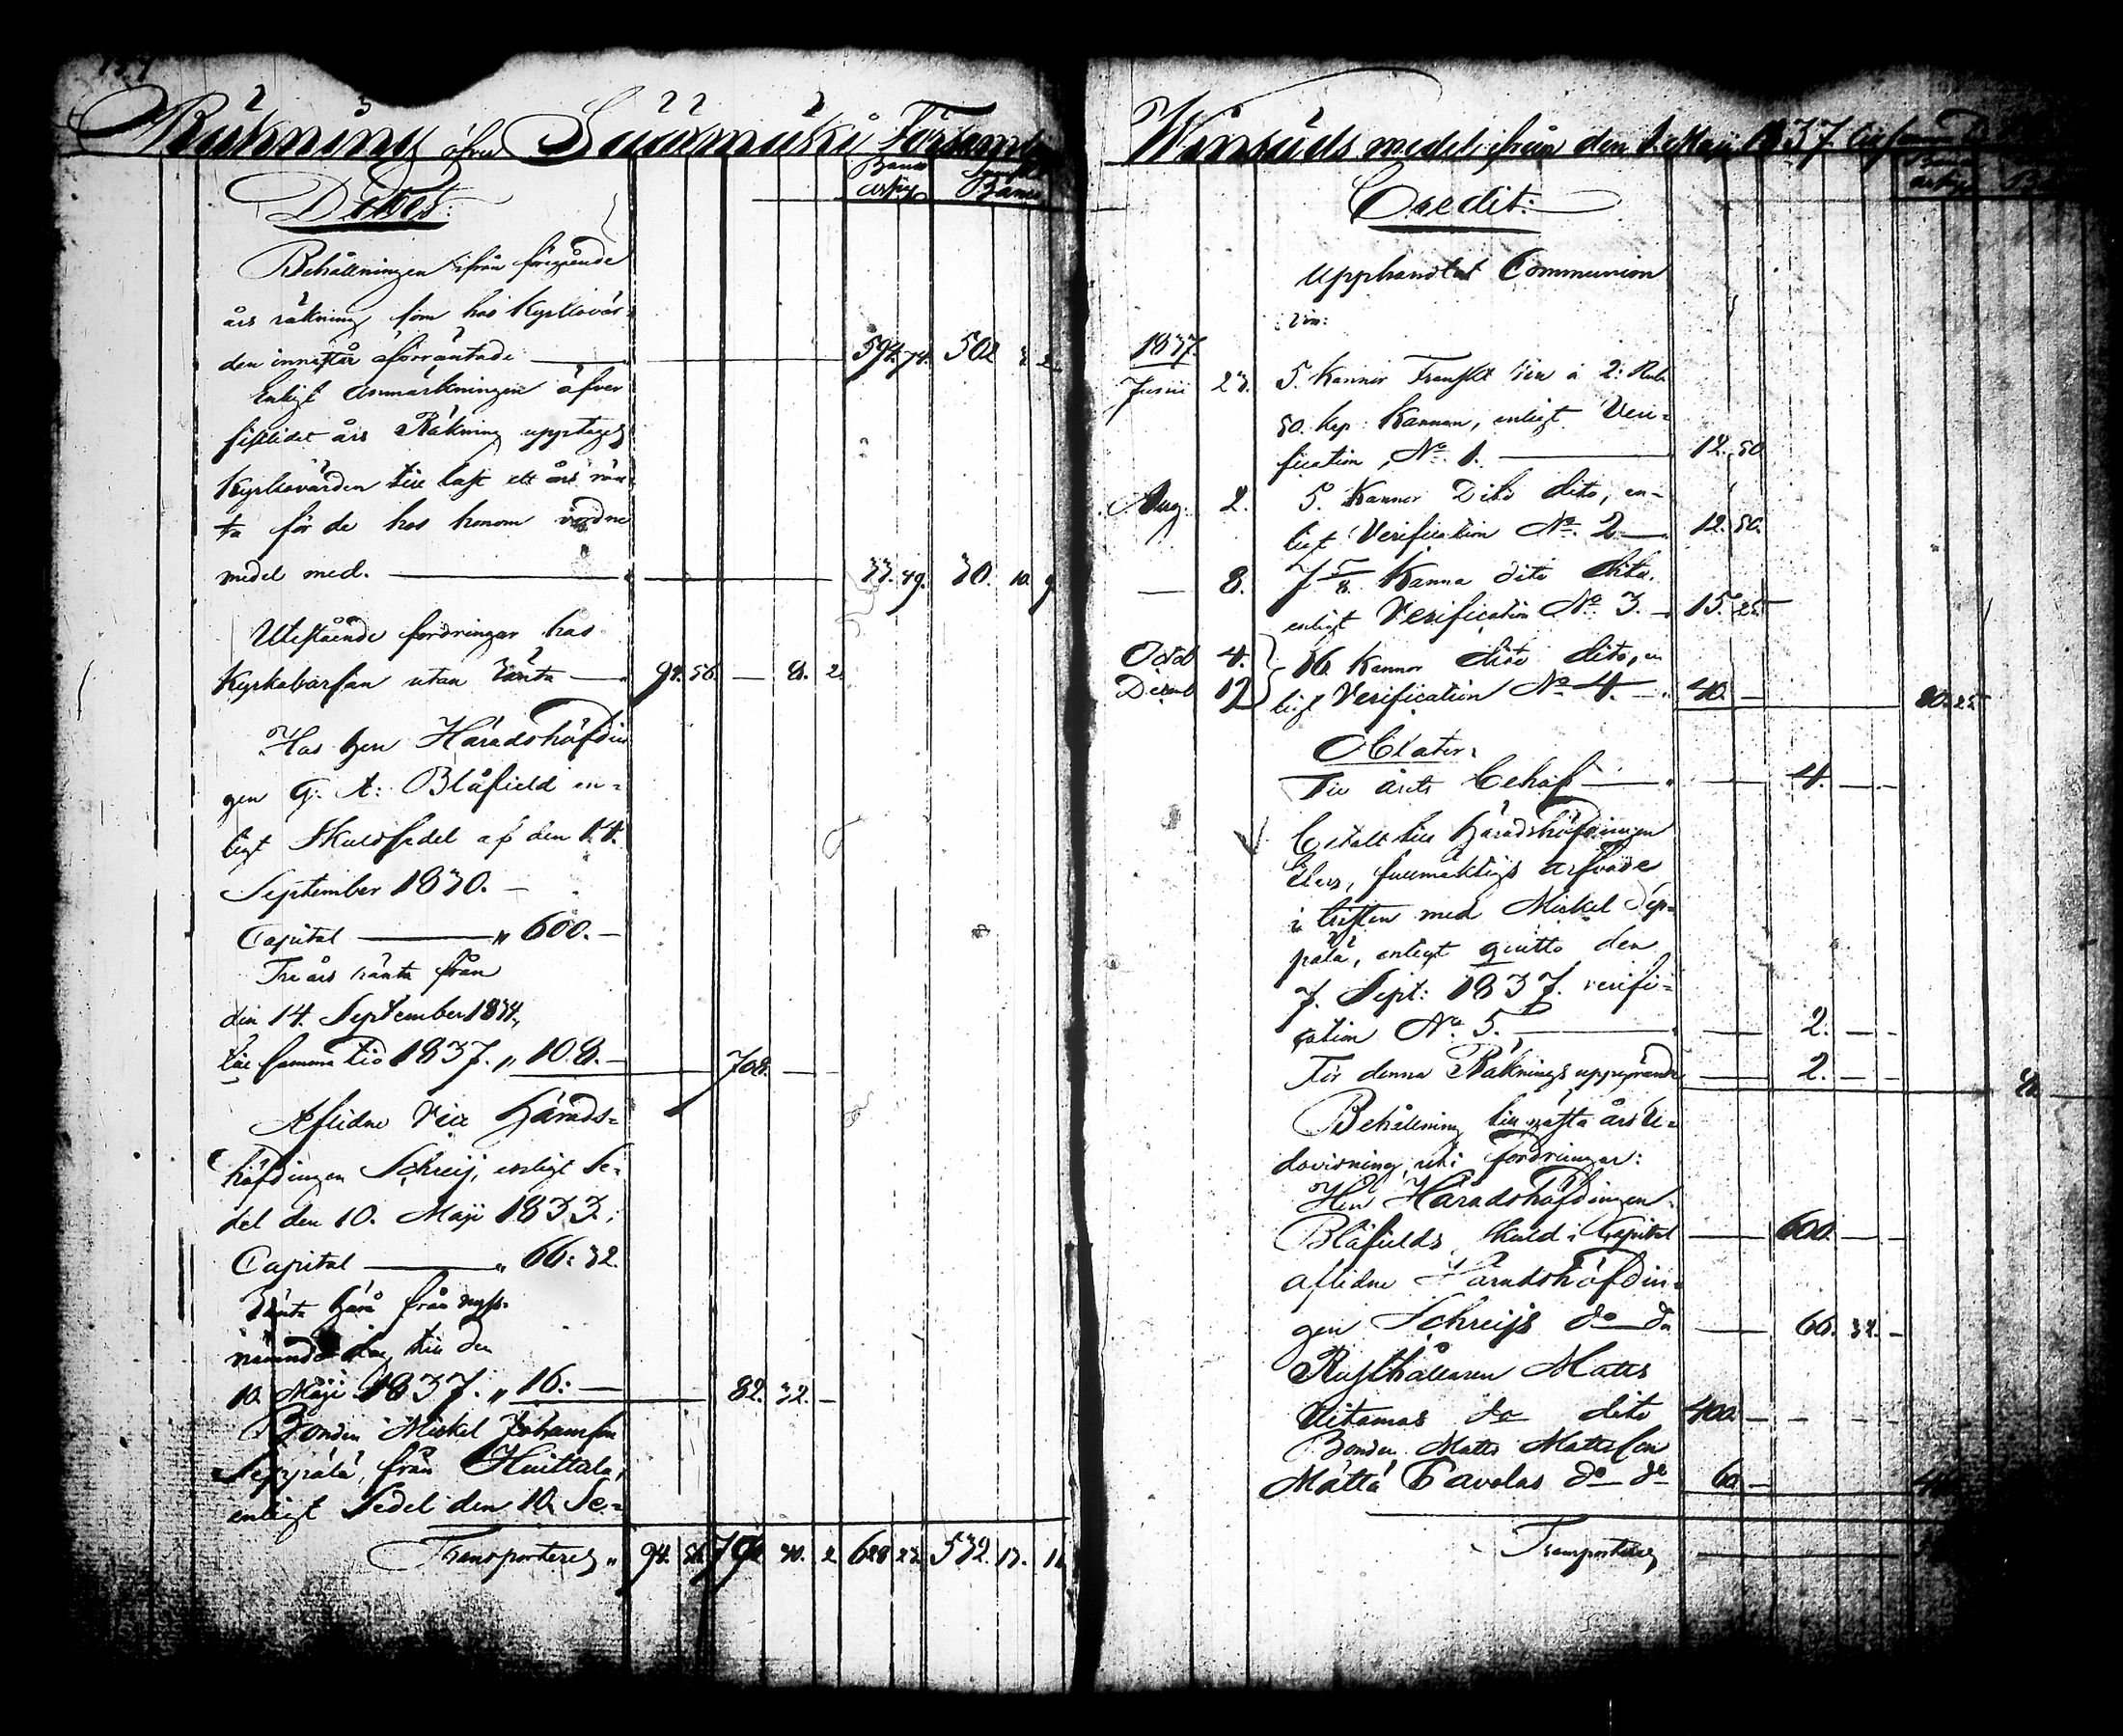 Räkning öfver Säämäki Församlings
Debet:
Behållningen ifrån föregående
års räkning som hos Kyrkovär-
den innestår oförräntade — 594. 74. 502
Enligt anmärkningen öfver
sistlidet års Räkning upptages
Kyrkovärden till last ett års rän-
ta för de hos honom
medel med. — 33. 49. 30. 10. 9
Utestående fordringar hos
Kyrkobärfan utan ränta — 94. 56. — 8. 2
Hos Herr Häradshöfdin
gen G: A: Blåfield en-
ligt Skuldsedel af den 14.
September 1830. —
Capital — „ 600. —
Tre års ränta från
den 14. September 1834,
till samma tid 1837. „ 108. — 708. — —
Aflidne Vice Härads-
höfdingen Schreij, enligt Se-
del den 10. Maji 1833;
Capital — „ 66: 32.
Ränta härå från nyss-
nämnde dag till den
10. Maji 1837. „ 16: — 82. 32. —
Bonden Mickel Johansson
Seppälä, från Huittala,
enligt Sedel den 10. Se-
Transporteres „ 94. 56. 790 30. 2 628 23. 532. 13. 11
Winsäds medel ifrån den 1. Maji 1837 till samma
Credit:
Upphandlat Communion
vin:
1837.
Junii 23. 5. Kannor Franskt vin à 2: Rub.
50. kop: Kannan, enligt Veri-
fication, No. 1. — 12. 50
Aug: 2. 5. Kannor Dito dito, en-
ligt Verification No. 2 — 12. 50.
— 8. 7 5/8 Kanna dito dito.
enligt Verification No 3. — 15. 25
Octob 4. 16 Kannor dito dito, en
Decemb 12 ligt Verification No 4. — 40. — 80. 25
Oblater.
Till årets behof — 4. — —
Betalt till Häradshöfdingen
Elers, fullmäktigs arfvode
i tvisten med Mickel Sep-
pälä, enligt quitto den
7. Sept: 1837. verifi-
cation No 5. — 2. — —
För denna Räknings uppgörande — 2. — —
Behållning till nästa års re-
dovisning uti fordringar:
Herr Häradshöfdingen
Blåfields skuld i Capital — 600. — —
Aflidne Häradshöfdin-
gen Schreijs do do — 66. 32. —
Rusthållaren Matts
Uitamas do dito 400. — — — —
Bonden Matts Mattsson
Mattä Pavolas do do 60 —
Transporteres —